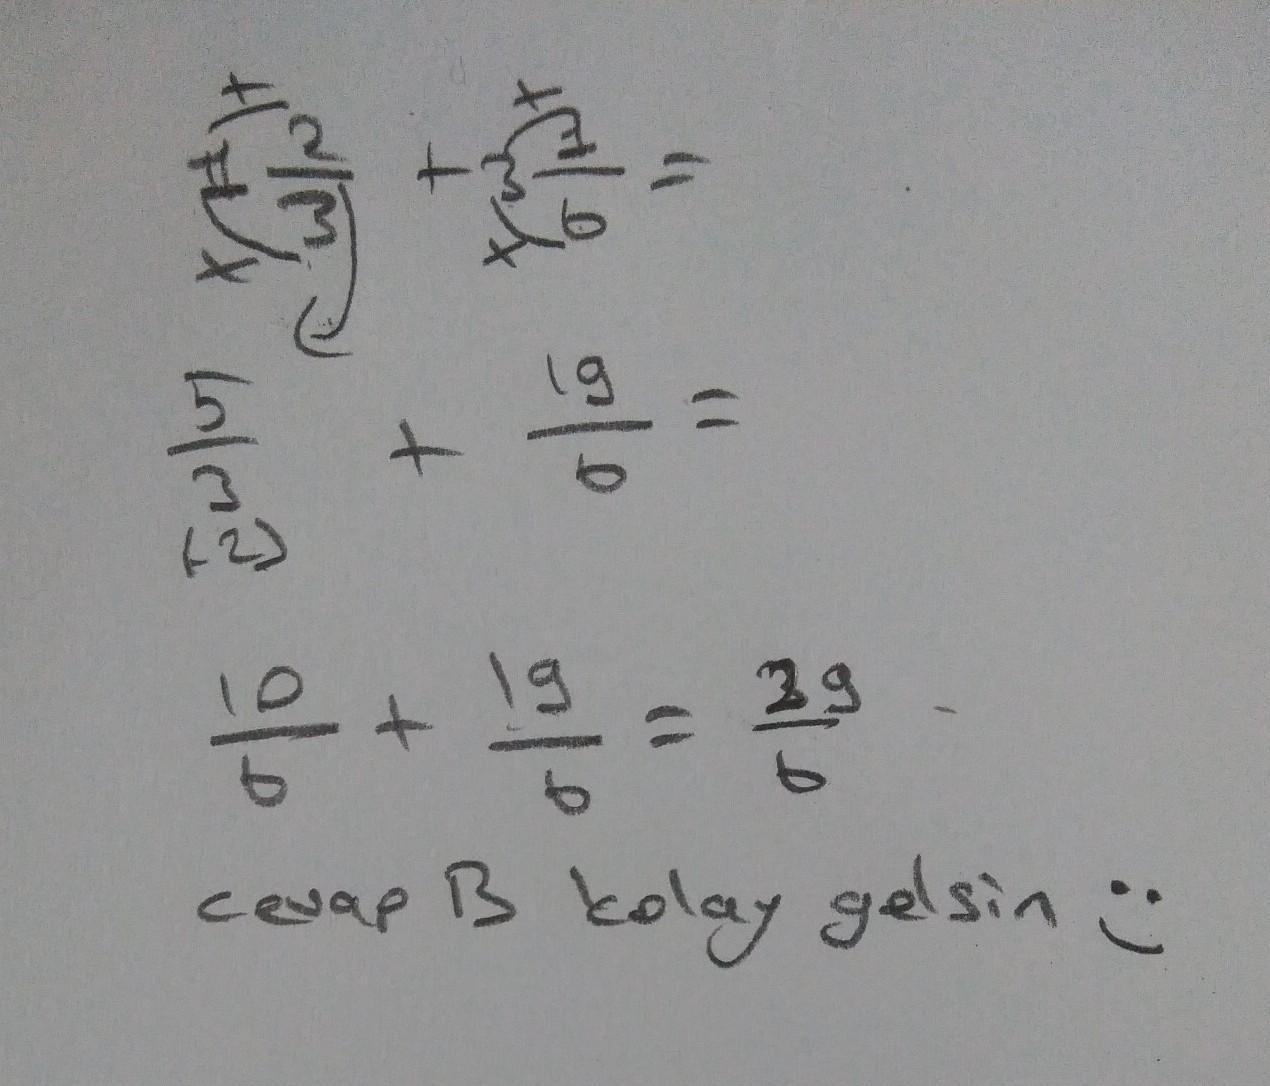 1 2/3 + 3 1/6 =
5/3 + 19/6 =
(2)
10/6 + 19/6 = 29/6
cevap B kolay gelsin :)